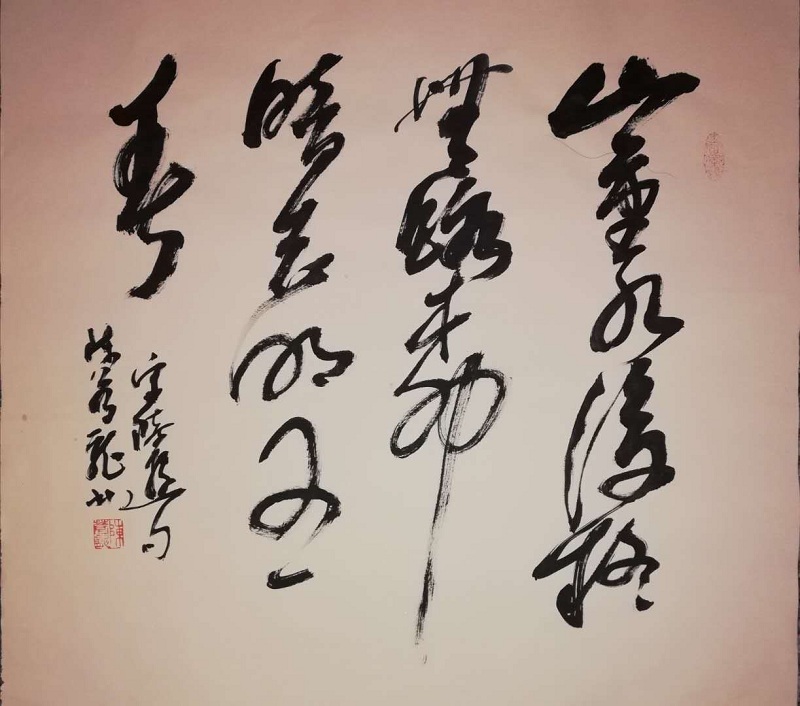 山重水復疑
無路柳
暗花明又一
村
宋陸遊句
陳
龍